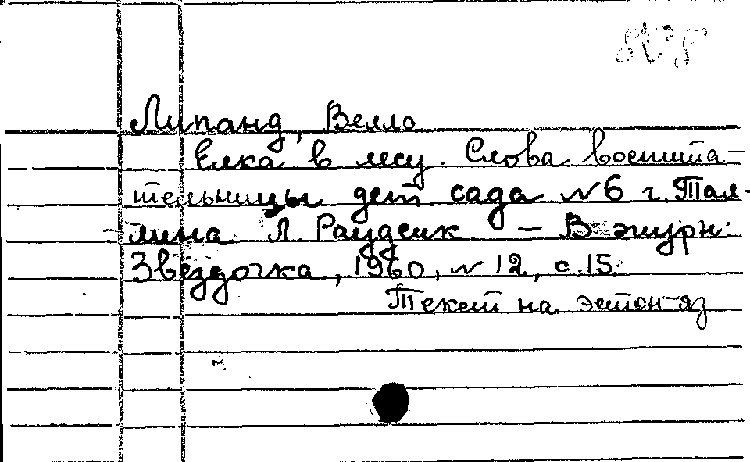 Липанд, Велло
Елка в лесу. Слова воспита-
тельницы дет. сада №6 г. Тал-
лина Л. Раудсик — В журн:
Звездочка, 1960, №12, с.15.
Текст на эстон яз